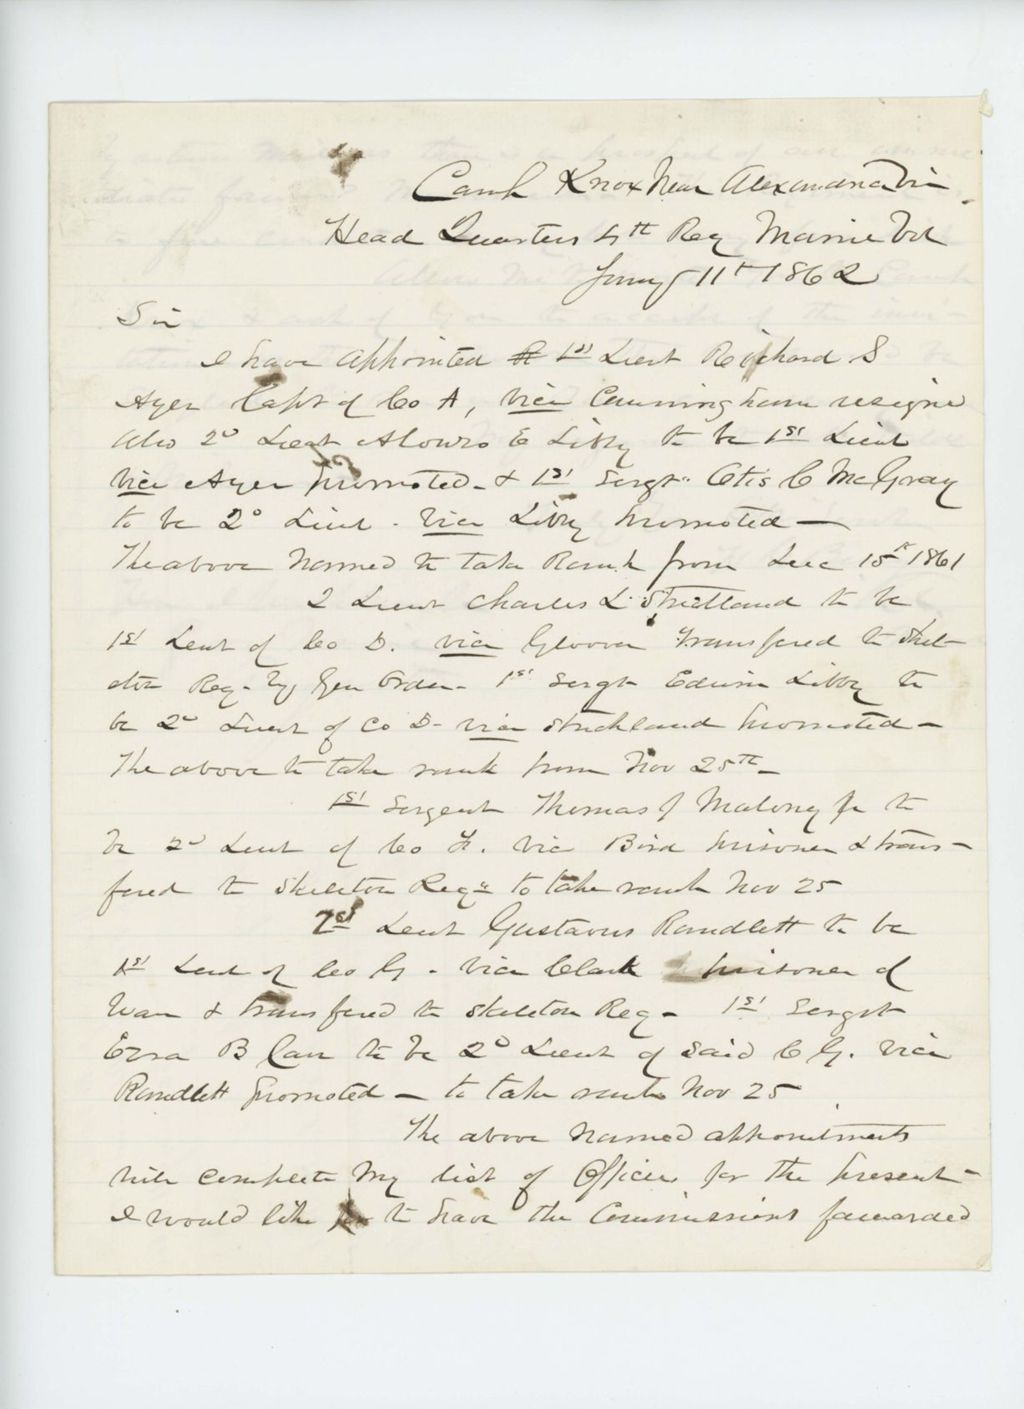 Camp Knox Near Alexandria Via
Head Quarters 4th Reg Maine Vol
Jany 11th 1862
Sir
I have appointed 1st Lieut Richard S
Ayer Capt of Co A, vice Cunningham resigned
also 2d Lieut Alonzo E Libby to be 1st Lieut
vice Ayer promoted - & 1st Sergt Otis C McGray
to be 2d Lieut - vice Libby promoted -
The above named to take Rank from Dec 15th 1861
2 Lieut Charles L. Strickland to be
1st Leut of Co D. vice Gloover transfered to Skel-
eton Reg - by Gen Order - 1st Sergt Edwin Libby to
be 2d Lieut of Co D - vice Strickland promoted -
The above to take rank from Nov 25th -
1st Sergent Thomas J Maloney jr to
be 2d Leut of Co F. vice Bird prisoner & trans-
fered to Skeleton Regt to take rank Nov 25
2d Leut Gustavus Randlett to be
1st Leut of Co G - vice Clark prisoner of
War & transfered to Skeleton Reg - 1st Sergt
Ezra B Carr to be 2d Lieut of said C G. vice
Randlett promoted - to take rank Nov 25
The above named appointments
will complete my list of Officers for the present -
I would like to have the Commissions forwarded